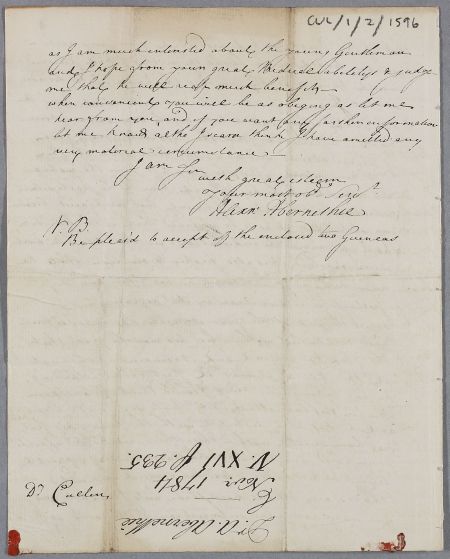 CUL/1/2/1596
as I am much interested about the young Gentleman
and I hope from your great Medical abilitys & judge
=ment that he will reap much benefit
when convenient you will be as obliging as let me
hear from you, and if you want any farther information
let me know altho I scarce think I have omitted any
very material circumstance —
I am Sir
with great esteem
your most obt. Servt.
Alexr. Abernethie
N.B.
Be pleas'd to accept of the enclosed two Guineas
Dr. Cullen
Dr. A. Abernethie
Novr. 1784
N. XVI p. 235.